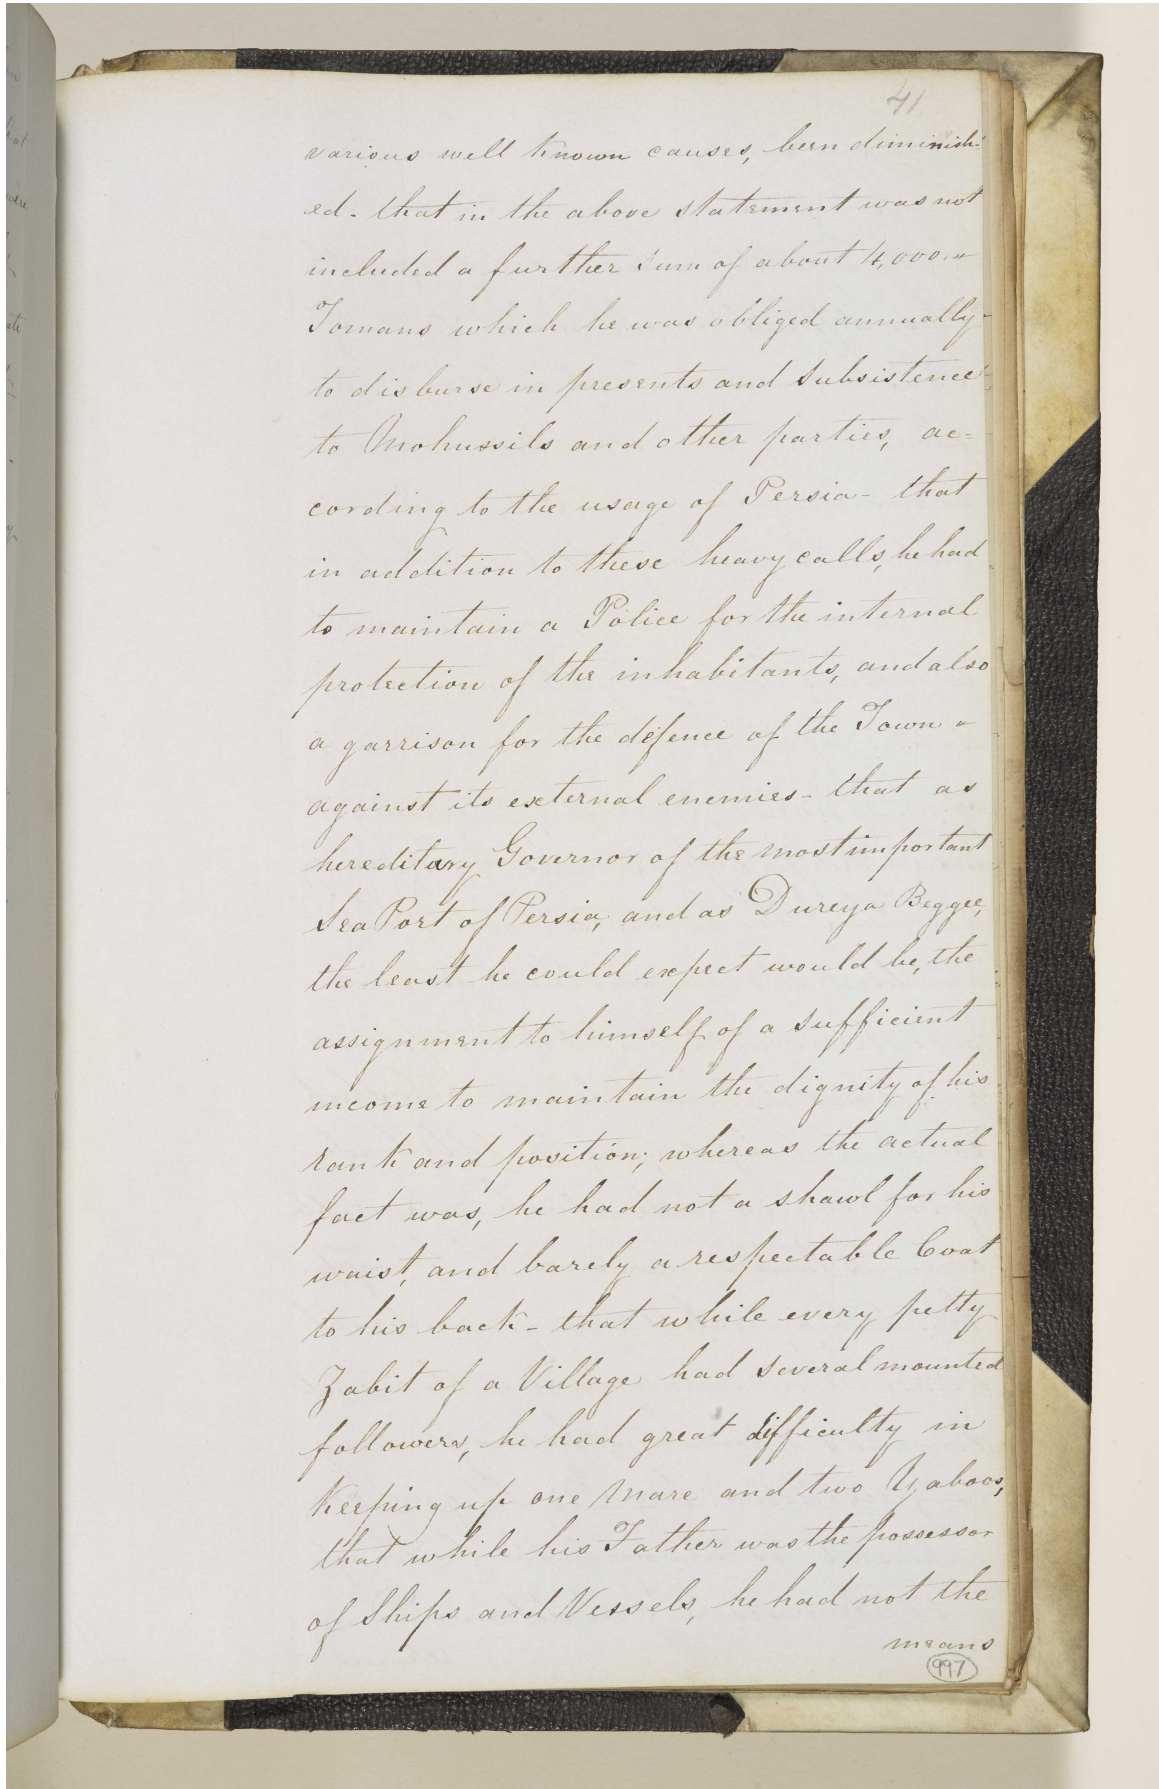 41
various well known causes, been diminish-
ed - that in the above statement was not
included a further sum of about 4,000
Tomans which he was obliged annually
to disburse in presents and subsistence
to Mohussils and other parties, ac=
cording to the usage of Persia - that
in addition to these heavy calls, he had
to maintain a Police for the internal
protection of the inhabitants, and also
a garrison for the defence of the Town
against its external enemies - that as
hereditary Governor of the most important
Sea Port of Persia, and as Dureya Beggee,
the least he could expect would be, the
assignment to himself of a sufficient
income to maintain the dignity of his
rank and position; whereas the actual
fact was, he had not a shawl for his
waist, and barely a respectable Coat
to his back - that while every petty
Zabit of a Village had several mounted
followers, he had great difficulty in
keeping up one Mare and two Yaboos,
that while his Father was the possessor
of Ships and Vessels, he had not the
means
997